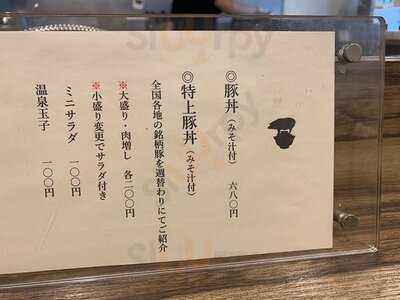 ◎豚丼（みそ汁付） 六八〇円
◎特上豚丼（みそ汁付）
全国各地の銘柄豚を週替わりにてご紹介
※大盛り・肉増し 各二〇〇円
※小盛り変更でサラダ付き
ミニサラダ 一〇〇円
温泉玉子 一〇〇円